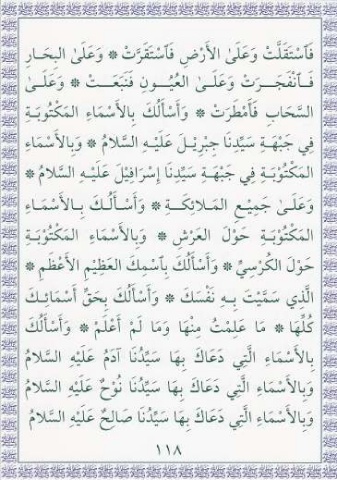 فَاسْتَقَلَّتْ وَعَلَى الأَرْضِ فَاسْتَقَرَّتْ ❊ وَعَلَى البِحَارِ
فَانْفَجَرَتْ وَعَلَى العُيُونِ فَنَبَعَتْ ❊ وَعَلَى
السَّحَابِ فَأَمْطَرَتْ ❊ وَأَسْأَلُكَ بِالأَسْمَاءِ المَكْتُوبَةِ
فِي جَبْهَةِ سَيِّدِنَا جِبْرِيلَ عَلَيْهِ السَّلَامُ ❊ وَبِالأَسْمَاءِ
المَكْتُوبَةِ فِي جَبْهَةِ سَيِّدِنَا إِسْرَافِيلَ عَلَيْهِ السَّلَامُ ❊
وَعَلَى جَمِيعِ المَلَائِكَةِ ❊ وَأَسْأَلُكَ بِالأَسْمَاءِ
المَكْتُوبَةِ حَوْلَ العَرْشِ ❊ وَبِالأَسْمَاءِ المَكْتُوبَةِ
حَوْلَ الكُرْسِيِّ ❊ وَأَسْأَلُكَ بِاسْمِكَ العَظِيمِ الأَعْظَمِ ❊
الَّذِي سَمَّيْتَ بِهِ نَفْسَكَ ❊ وَأَسْأَلُكَ بِحَقِّ أَسْمَائِكَ
كُلِّهَا ❊ مَا عَلِمْتُ مِنْهَا وَمَا لَمْ أَعْلَمْ ❊ وَأَسْأَلُكَ
بِالأَسْمَاءِ الَّتِي دَعَاكَ بِهَا سَيِّدُنَا آدَمُ عَلَيْهِ السَّلَامُ
وَبِالأَسْمَاءِ الَّتِي دَعَاكَ بِهَا سَيِّدُنَا نُوحٌ عَلَيْهِ السَّلَامُ
وَبِالأَسْمَاءِ الَّتِي دَعَاكَ بِهَا سَيِّدُنَا صَالِحٌ عَلَيْهِ السَّلَامُ
١١٨